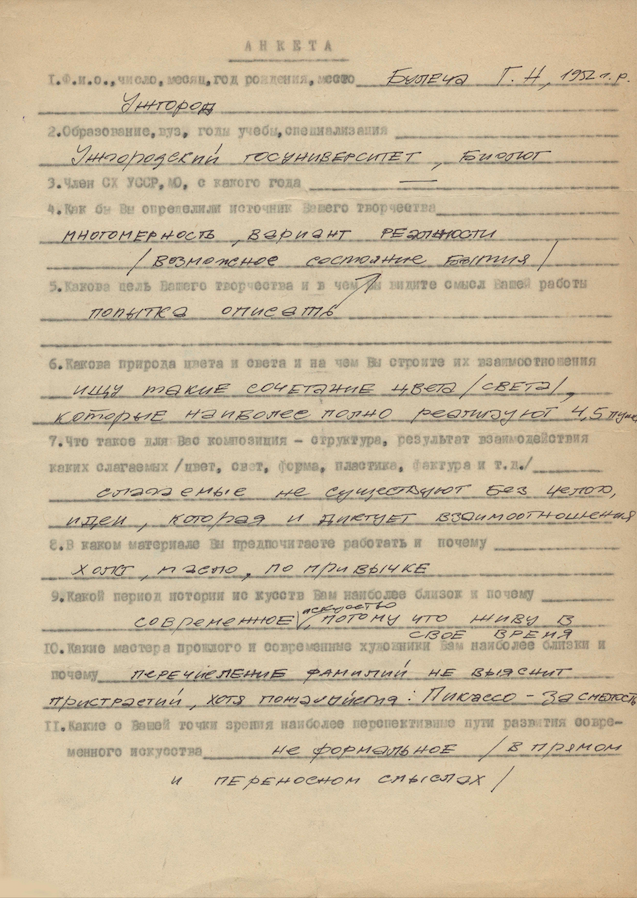 АНКЕТА
1.Ф.и.о.,число,месяц,год рождения,место Булеца Г.Н, 1952 г.р.
Ужгород
2.Образование,вуз, годы учебы,специализация
Ужгородский госуниверситет, биолог
3.Член СХ УССР,МО, с какого года —
4.Как бы Вы определили источник Вашего творчества
многомерность, вариант реальности
/возможное состояние бытия/
5.Какова цель Вашего творчества и в чем Вы видите смысл Вашей работы
попытка описать
6.Какова природа цвета и света и на чем Вы строите их взаимоотношения
ищу такие сочетание цвета /света/,
которые наиболее полно реализуют 4,5 пункт
7.Что такое для Вас композиция - структура, результат взаимодействия
каких слагаемых /цвет, свет, форма, пластика, фактура и т.д./
слагаемые не существуют без целого,
идеи, которая и диктует взаимоотношения
8.В каком материале Вы предпочитаете работать и почему
холст, масло, по привычке
9.Какой период истории ис кусств Вам наиболее близок и почему
современное искусство, потому что живу в
свое время
10.Какие мастера прошлого и современные художники Вам наиболее близки и
почему перечисление фамилий не выяснит
пристрастий, хотя пожалуйста: Пикассо - за смелость
11.Какие с Вашей точки зрения наиболее перспективные пути развития совре-
менного искусства не формальное /в прямом
и переносном смыслах/